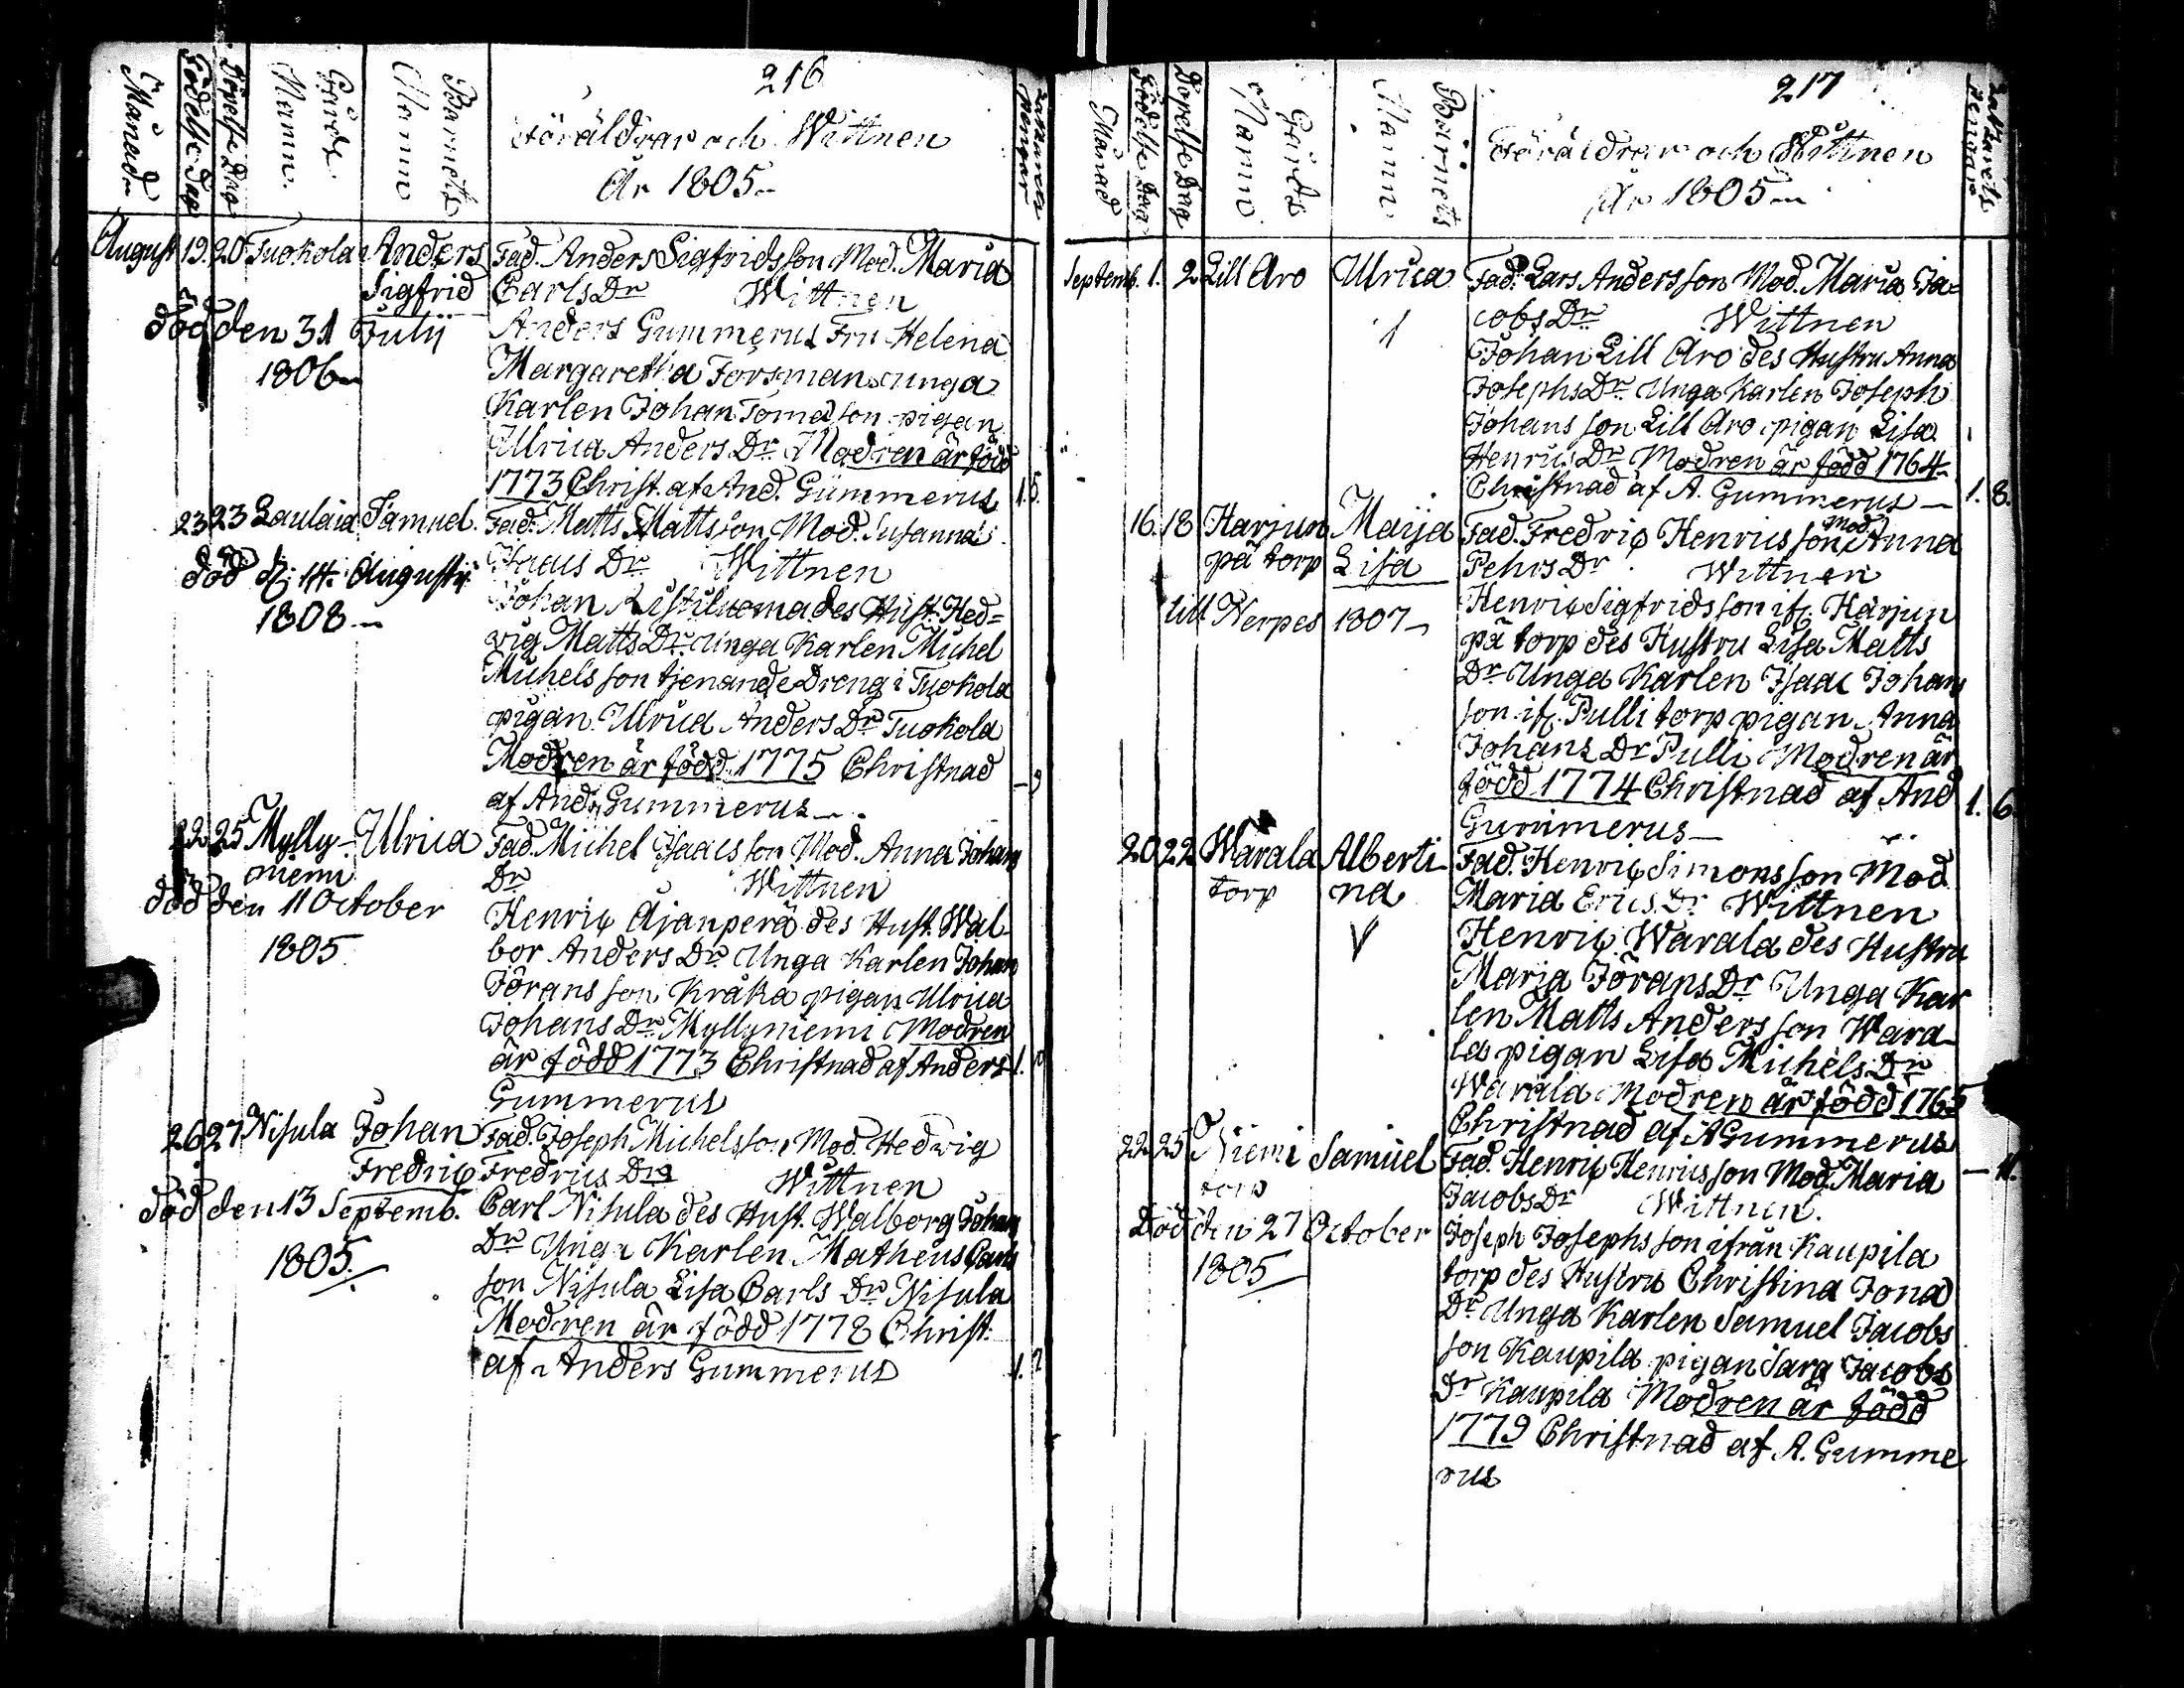 216
Månad
Födelse Dag
Döpelse Dag
Gårds Namn.
Barnets Namn
Föräldrar och Wittnen
År 1805
August 19. 20 Tuokola Anders Sigfrid
död den 31 Julii
1806
Fad. Anders Sigfridsson Mod. Maria
Carls Dr Wittnen
Anders Gummerus Fru Helena
Margaretha Forsman unga
Karlen Johan Tomasson pigan
Ulrica Anders Dr. Modren är född
1773 Christ. af And. Gummerus 1. 5.
23 23 Laulaia Samuel.
död d. 14 Augusti
1808
Fad. Matts Mattsson Mod. Susanna
Isacs Dr Wittnen
Johan Ristiluoma des Hust. Hed=
vig Matts Dr. Unga Karlen Michel
Michels son tjenande Dreng i Tuokola
pigan Ulrica Anders Dr Tuokola
Modren är född 1775 Christnad
af And. Gummerus
22. 25 Mylly- Ulrica
niemi
död den 11 October
1805
Fad. Michel Isaacs son Mod. Anna Johans
Dr Wittnen
Henric Ajanperä des Hust. Wal-
bor Anders Dr. Unga Karlen Johan
Jörans son Kråka pigan Ulrica
Johans Dr Myllyniemi Modren
är född 1773 Christnad af Anders
Gummerus
26 27. Nisula Johan
Fredric
död den 13 Septemb.
1805.
Fad. Joseph Michelsson Mod. Hedwig
Fredrics Dr Wittnen
Carl Nisula des Hust. Walborg Johans
Dr Unga Karlen Matheus Carls
son Nisula Lisa Carls Dr Nisula
Modren är född 1778 Christ.
af Anders Gummerus
217
Månad
Födelse Dag
Döpelse Dag
Gårds Namn
Barnets Namn
Föräldrar och Wittnen
År 1805
Septemb. 1. 2 Lill Aro Ulrica
Fad. Lars Andersson Mod. Maria Ja=
cobs Dr Wittnen
Johan Lill Aro des Hustru Anna
Josephs Dr. Unga Karlen Joseph
Johans son Lill Aro pigan Lisa
Henrics Dr Modren är född 1764
Christnad af A. Gummerus 1. 8.
16. 18 Harjun Maija
pä torp Lisa
till Nerpes 1807
Fad. Fredric Henrics son Mod. Anna
Pehrs Dr Wittnen
Henric Sigfridsson if. Harjun
pä torp des Hustru Lisa Matts
Dr Unga Karlen Isaac Johans
son if. Pulli torp pigan Anna
Johans Dr Pulli Modren är
född 1774 Christnad af And 1. 6
Gummerus
20 22 Warala Alberti-
torp na
Fad. Henric Simonsson Mod
Maria Erics Dr Wittnen
Henric Warala des Hustru
Maria Jörans Dr Unga Kar
len Matts Andersson Wara-
la pigan Lisa Michels Dr
Warala Modren är född 1765
Christnad af A Gummerus
22 25 Niemi Samuel
torp
Död den 27 October
1805
Fad. Henric Henricsson Mod. Maria
Jacobs Dr Wittnen.
Joseph Josephs son ifrån Kaupila
torp des Hustru Christina Jona
Dr Unga Karlen Samuel Jacobs
son Kaupila pigan Sara Jacobs
Dr Kaupila Modren är född
1779 Christnad af A. Gumme
rus